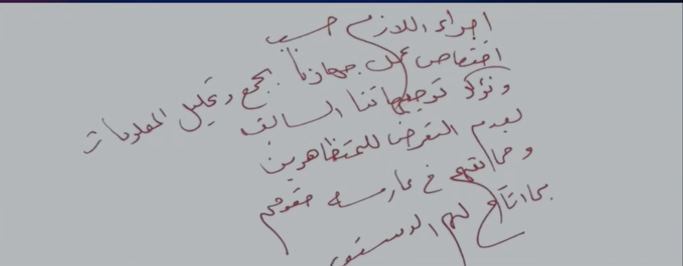 اجراء اللازم حسب
اختصاص عمل جهازنا بجمع وتحليل المعلومات
ونؤكد توجيهاتنا السابقة
بعدم التعرض للمتظاهرين
وحمايتهم في ممارسة حقوقهم
بما اتاح لهم الدستور